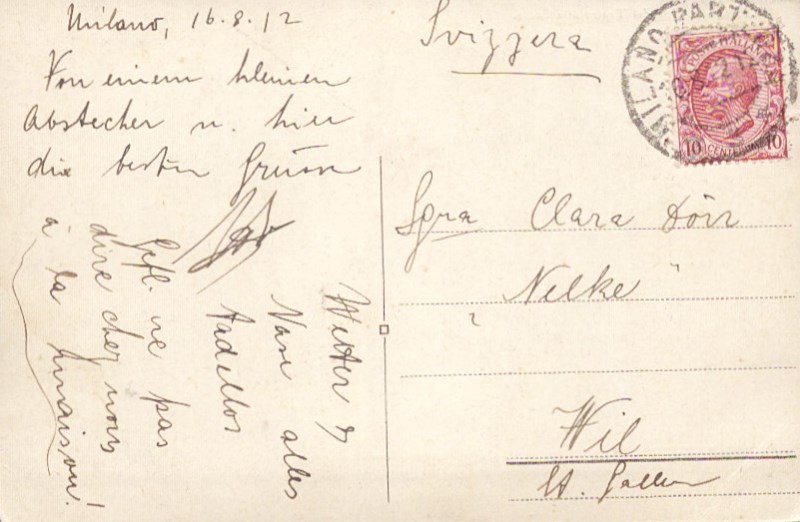 Milano, 16.8.12
Von einem kleinen
Abstecher n. hier
die besten Grüsse
Wetter &
Nase alles
tadellos
Gefl. ne pas
dire chez nous
à la maison!
Svizzera
MILANO PARTENZA
POSTE ITALIANE
10 CENTESIMI 10
Sgra Clara Dörr
"Nelke"
Wil
St. Gallen